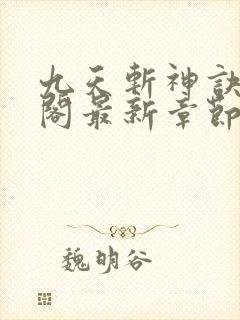 九天斬神訣
閣最新章節
魏明谷